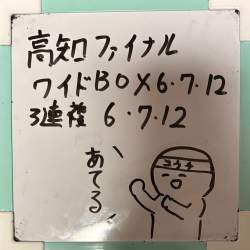 高知ファイナル
ワイドBOX6・7・12
3連複 6・7・12
あてる
コウチ